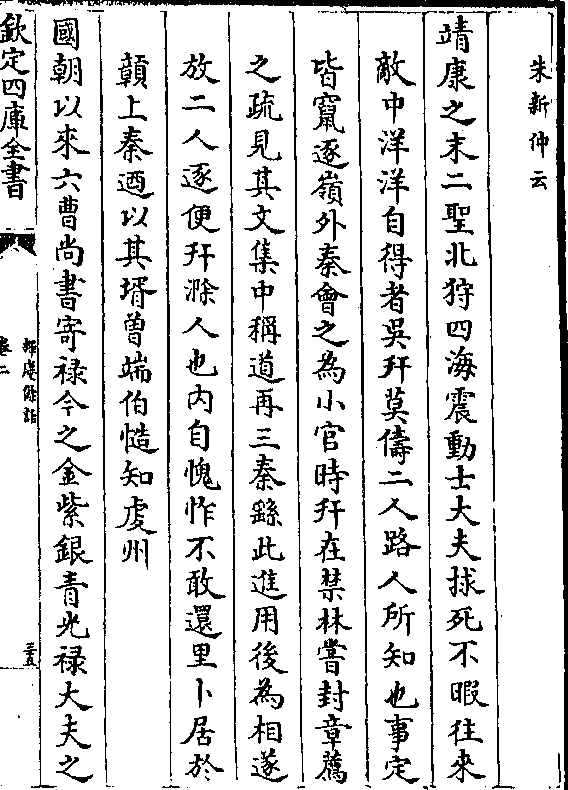 朱新仲云
靖康之末二聖北狩四海震動士大夫捄死不暇往來
敵中洋洋自得者吳幵莫儔二人路人所知也事定
皆竄逐嶺外秦會之為小官時幵在禁林嘗封章薦
之疏見其文集中稱道再三秦繇此進用後為相遂
放二人逐便幵滁人也内自愧怍不敢還里卜居於
贛上秦迺以其壻曾端伯慥知虔州
國朝以來六曹尚書寄祿今之金紫銀青光禄大夫之
欽定四庫全書
揮麈餘話
卷二
三五